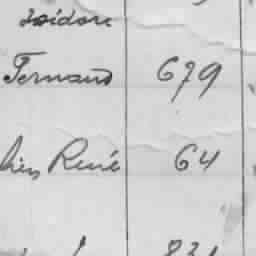 Isidore
Fernand 679
René 64